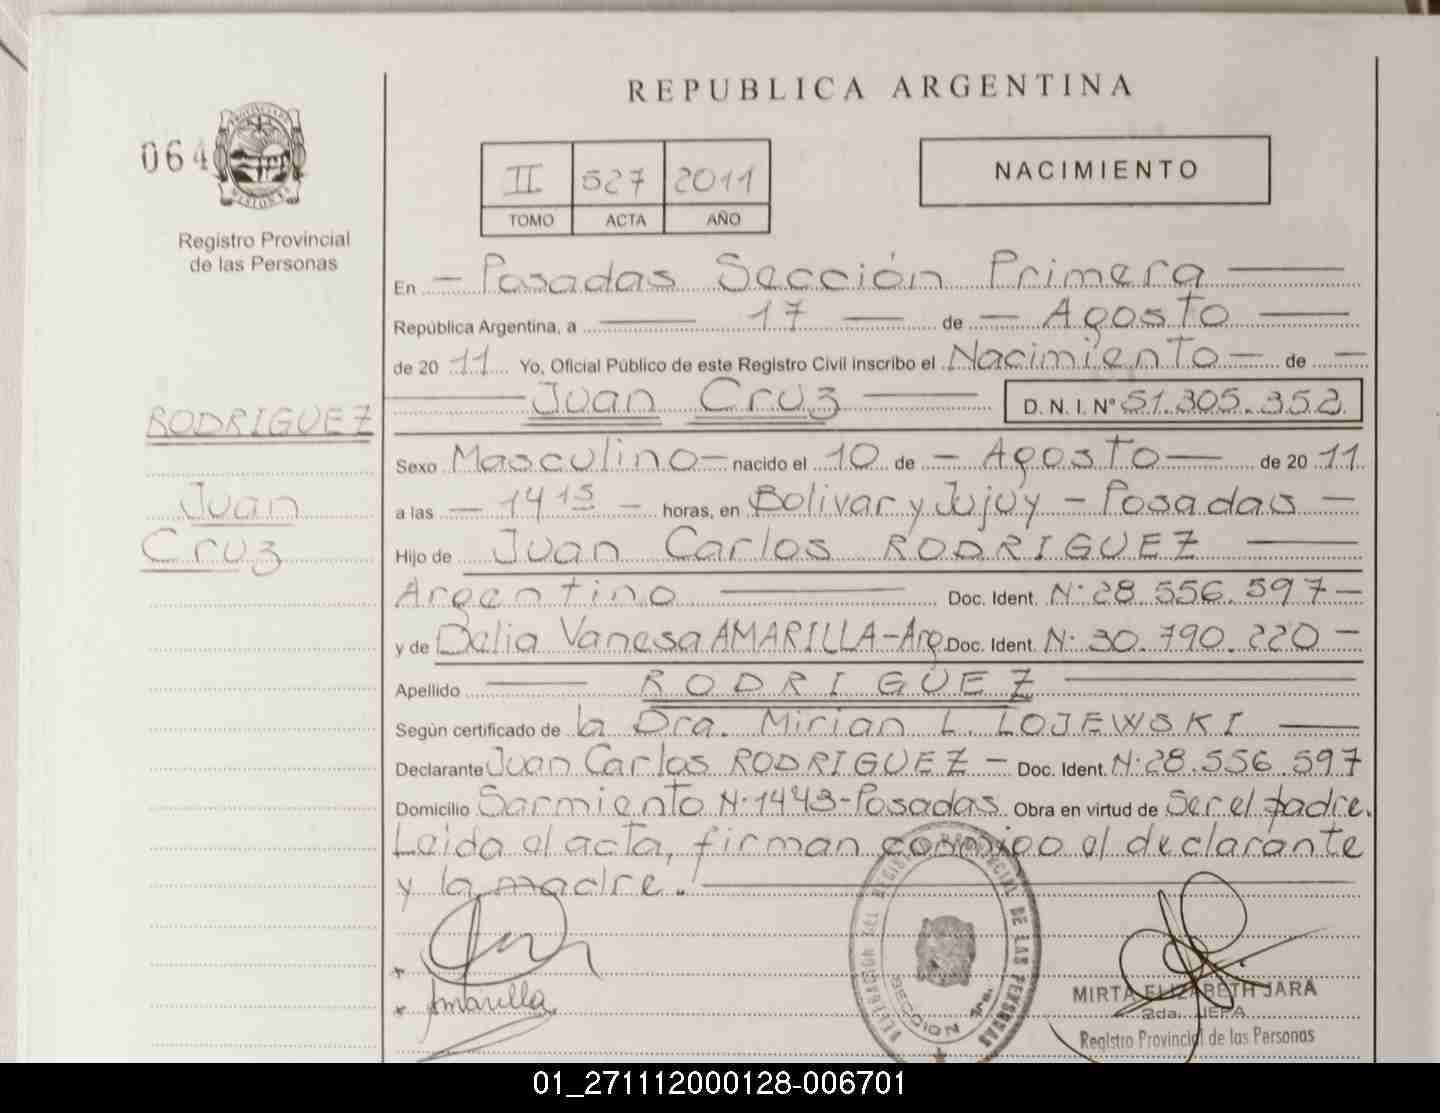 REPUBLICA ARGENTINA
064
II 527 2011
TOMO ACTA AÑO
NACIMIENTO
Registro Provincial
de las Personas
En - Posadas Sección Primera
República Argentina, a 17 de - Agosto
de 20 11 Yo, Oficial Público de este Registro Civil inscribo el Nacimiento - de -
Juan Cruz D. N. I. Nº 51.305.352
RODRIGUEZ
Juan
Cruz
Sexo Masculino - nacido el 10 de - Agosto - de 20 11
a las - 14 15 - horas, en Bolivar y Jujuy - Posadas -
Hijo de Juan Carlos RODRIGUEZ
Argentino Doc. Ident. N· 28.556.597 -
y de Delia Vanesa AMARILLA - Arg Doc. Ident. N· 30.790.220 -
Apellido RODRIGUEZ
Según certificado de la Dra. Mirian L. LOJEWSKI
Declarante Juan Carlos RODRIGUEZ - Doc. Ident. N· 28.556.597
Domicilio Sarmiento N· 1443 - Posadas Obra en virtud de Ser el padre.
Leida el acta, firman conmigo el declarante
y la madre.
Amarilla
DELEGACION DEL REGISTRO PROVINCIAL DE LAS PERSONAS
SECCION 1ra.
MIRTA ELIZABETH JARA
2da. JEFA
Registro Provincial de las Personas
01_271112000128-006701